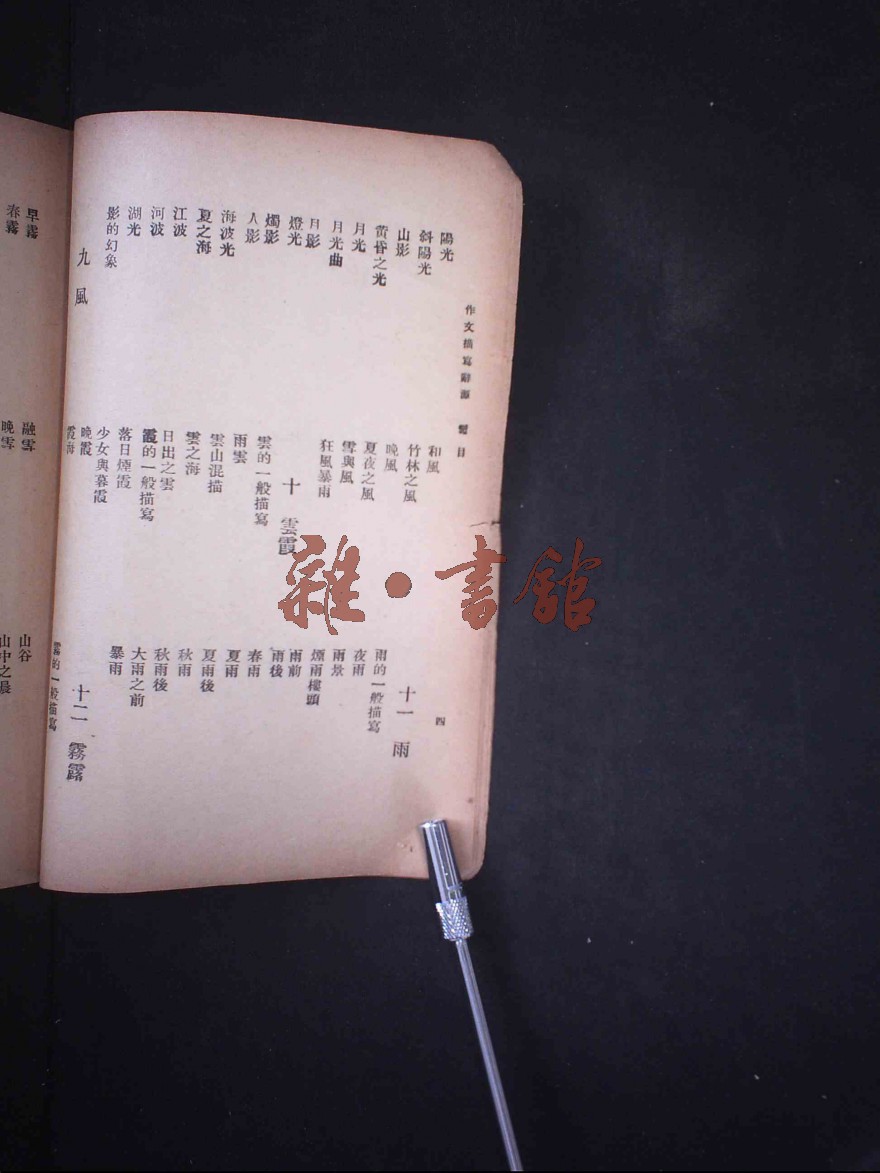 作文描寫辭源 總目
四
陽光
斜陽光
山影
黃昏之光
月光
月光曲
月影
燈光
燭影
人影
海波光
夏之海
江波
河波
湖光
影的幻象
九 風
和風
竹林之風
晚風
夏夜之風
雪與風
狂風暴雨
十 雲霞
雲的一般描寫
雨雲
雲山混描
雲之海
日出之雲
霞的一般描寫
落日煙霞
少女與暮霞
晚霞
霞海
十一 雨
雨的一般描寫
夜雨
雨景
煙雨樓頭
雨前
雨後
春雨
夏雨
夏雨後
秋雨
秋雨後
大雨之前
暴雨
十二 霧露
霧的一般描寫
早霧
春霧
融雪
晚雪
山谷
山中之晨
雜·書館